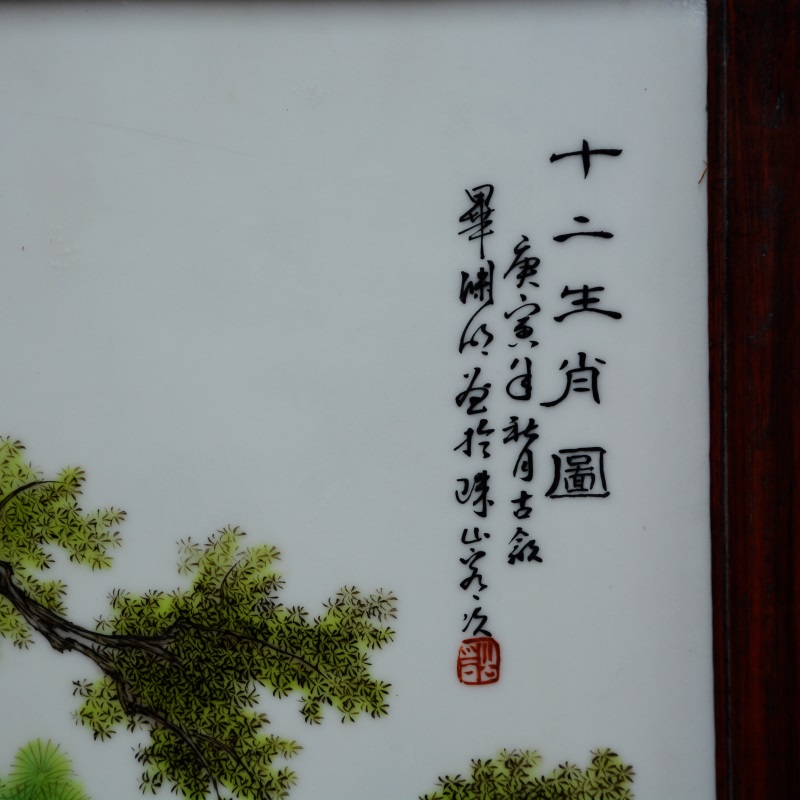 十二生肖圖
庚寅年秋月古歙
畢淵明畫於珠山客次